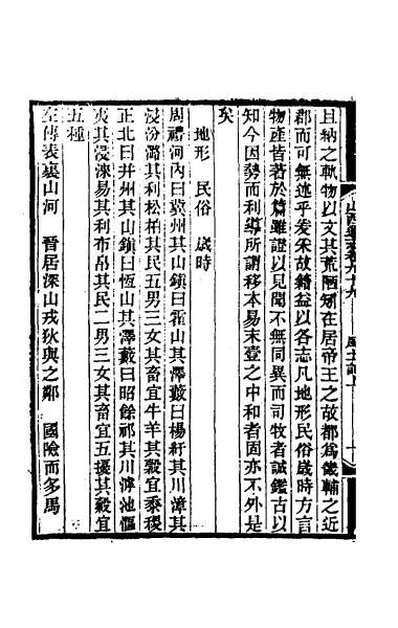 且納之軌物以文其荒陋矧在居帝王之故都爲畿輔之近
郡而可無述乎爰朱故籍益以各志凡地形民俗歲時方言
物產皆著於篇雖證以見聞不無同異而司牧者誠鑑古以
知今因勢而利導所謂移本易末壹之中和者固亦不外是
矣
地形 民俗 歲時
周禮河內曰冀州其山鎭曰霍山其澤藪曰楊紆其川漳其
浸汾潞其利松柏其民五男三女其畜宜牛羊其穀宜黍稷
正北曰幷州其山鎭曰恆山其澤藪曰昭餘祁其川滹池嘔
夷其浸淶易其利布帛其民二男三女其畜宜五擾其穀宜
五種
左傳表裏山河 晉居深山戎狄與之鄰 國險而多馬
山西通志卷九十九 風土記上 一